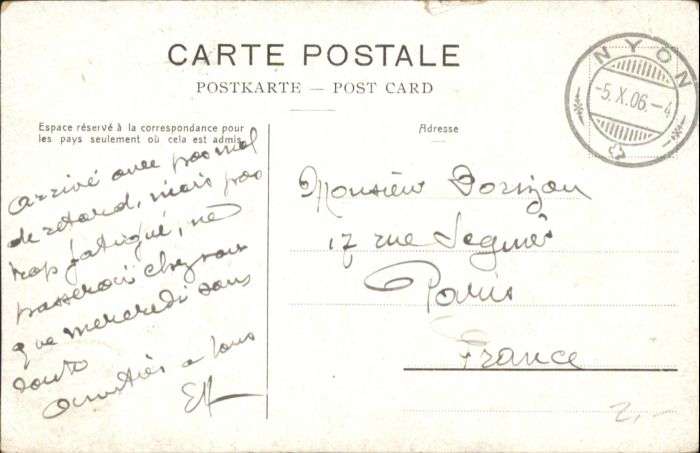 CARTE POSTALE
POSTKARTE — POST CARD
Espace réservé à la correspondance pour
les pays seulement où cela est admis.
Adresse
NYON
-5.X.06.-4
Arrivé avec pas mal
de retard, mais pas
trop fatigué, ne
passerai chez vous
que mercredi sans
doute
Amitiés a tous
Monsieur
17 rue
Paris
France
2,-